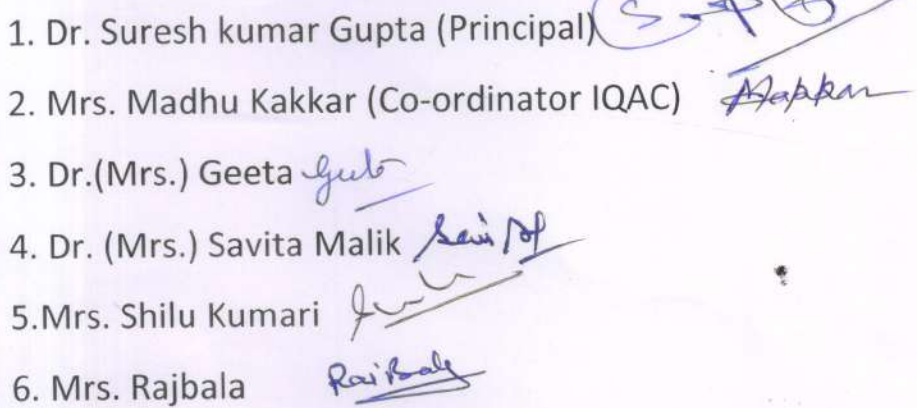 1. Dr. Suresh kumar Gupta (Principal)
2. Mrs. Madhu Kakkar (Co-ordinator IQAC)
3. Dr.(Mrs.) Geeta
4. Dr. (Mrs.) Savita Malik
5.Mrs. Shilu Kumari
6. Mrs. Rajbala